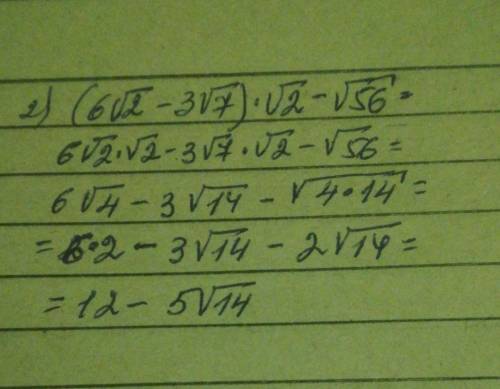 2) (6√2 - 3√7) · √2 - √56 =
6√2 · √2 - 3√7 · √2 - √56 =
6√4 - 3√14 - √4·14 =
= 6·2 - 3√14 - 2√14 =
= 12 - 5√14